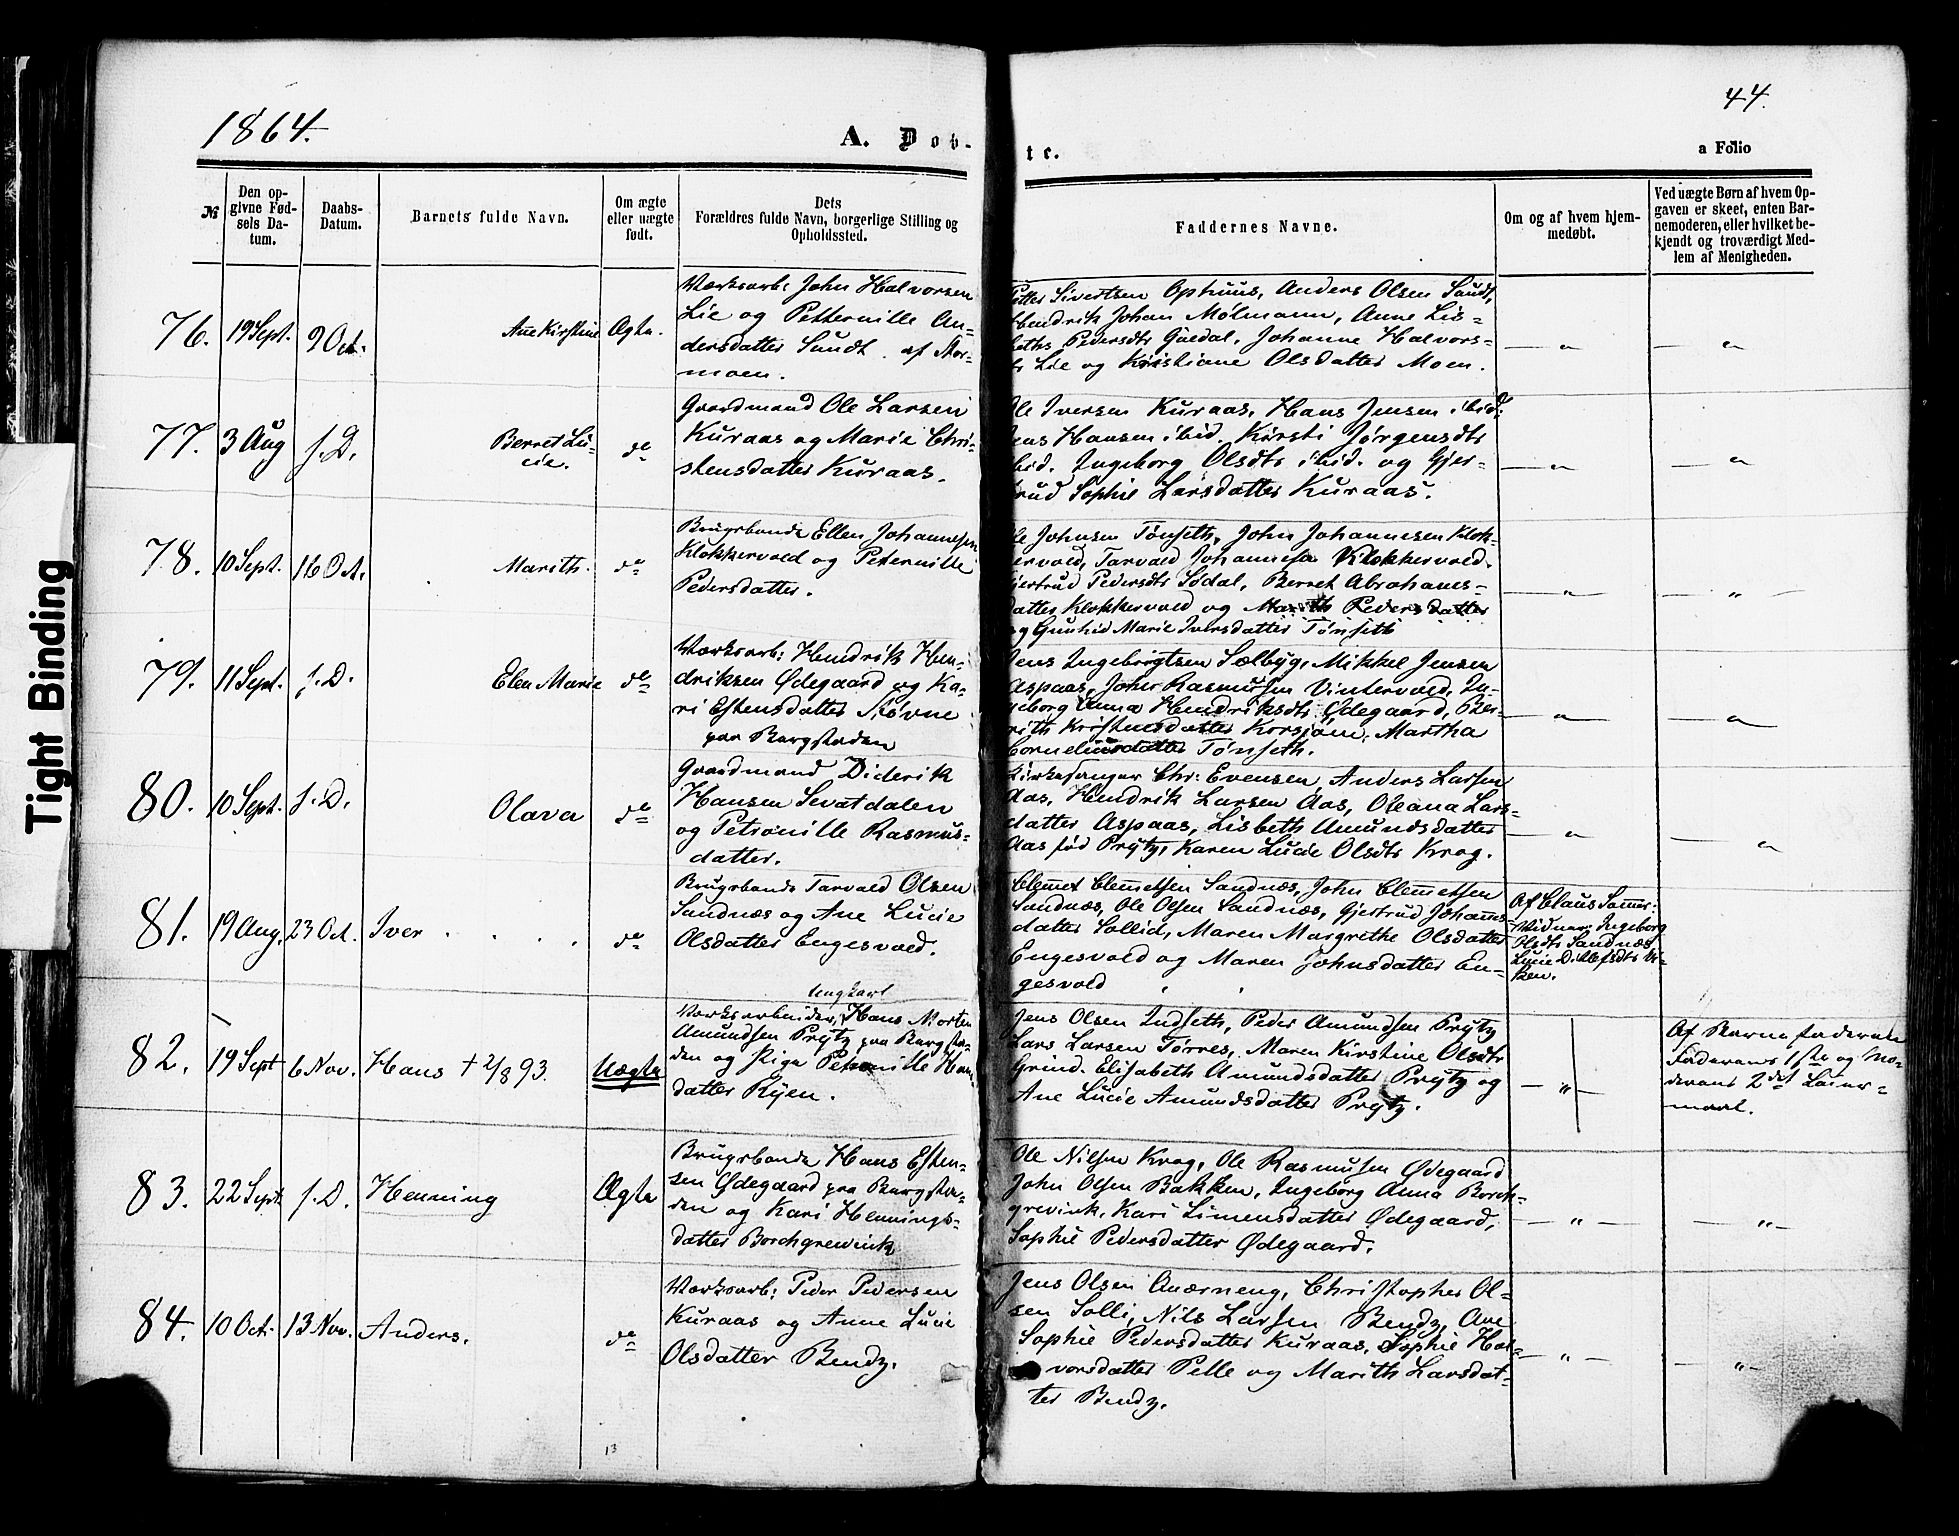 1864.
A. Dob-
te.
44.
a Folio
№
Den op-
givne Fød-
sels Da-
tum.
Daabs-
Datum.
Barnets fulde Navn.
Om ægte
eller uægte
født.
Dets
Forældres fulde Navn, borgerlige Stilling og
Opholdssted.
Faddernes Navne.
Om og af hvem hjem-
medøbt.
Ved uægte Børn af hvem Op-
gaven er skeet, enten Bar-
nemoderen, eller hvilket be-
kjendt og troværdigt Med-
lem af Menigheden.
76. 19 Sept. 9 Oct. Ane Kirstine Ægte.
Værksarb: John Halvorsen
Lie og Petternille An-
dersdatter Sundt af Stor-
moen.
Petter Sivertsen Ophuus, Anders Olsen Sundt,
Hendrik Johan Molmann, Anne Lis-
beths Pedersdtr Guldal, Johanne Halvors-
Lie og Kristiane Olsdatter Moen.
— " —
— " —
77. 3 Aug f. D. Berret Lu-
cie. do
Gaardmand Ole Larsen
Kuraas og Marie Chri-
stensdatter Kuraas.
Ole Iversen Kuraas, Hans Jensen ibid:
Jens Hansen ibid. Kirsti Jørgensdtr
ibid. Ingeborg Olsdtr ibid. og Gjer-
trud Sophie Larsdatter Kuraas.
— " —
— " —
78. 10 Sept. 16 Oct. Marith. do
Brugsbonde Ellen Johannesen
Klokkervold og Peternille
Pedersdatter.
Ole Johnsen Tønseth, John Johannesen Klok-
kervold, Tarvald Johannesen Klokkervold.
Gjertrud Pedersdtr Sødal, Berret Abrahams-
datter Klokkervold og Marith Pedersdatter
og Gunhild Marie Iversdatter Tønseth
— " —
— " —
79. 11 Sept. f. D. Elen Marie do
Værksarb: Hendrik Hen-
driksen Ødegaard og Ka-
ri Estensdatter Støvne
paa Bergstaden
Jens Ingebrigtsen Sælbyg, Mikkel Jensen
Aspaas, John Rasmusen Vintervold, In-
geborg Anna Hendriksdtr Ødegaard, Ber-
rith Kristensdatter Korsjøen, Martha
Corneliusdatter Tønseth.
— " —
— " —
80. 10 Sept. f. D. Olava do
Gaardmand Diderik
Hansen Sevatdalen
og Petronille Rasmus-
datter.
Kirkesanger Chr: Evensen, Anders Larsen
Aas, Hendrik Larsen Aas, Oleana Lars-
datter Aspaas, Lisbeth Amundsdatter
Aas fød Prytz, Karen Lucie Olsdtr Krog.
— " —
— " —
81. 19 Aug. 23 Oct. Iver . . . . do
Brugsbonde Tarvald Olsen
Sandnæs og Ane Lucie
Olsdatter Engesvold.
Clemet Clemetsen Sandnæs, John Clemetsen
Sandnæs, Ole Olsen Sandnæs, Gjertrud Johannes-
datter Sollid, Maren Margrethe Olsdatter
Engesvold og Maren Johnsdatter En-
gesvold
Af Claus
Vidner: Ingeborg
Olsdtr Sandnæs,
Lucie
82. 19 Sept 6 Nov. Hans † 2/8 93. Uægte
Ungkarl
Værksarbeider, Hans Morten
Amundsen Prytz paa Bergsta-
den og Pige Peternille Han-
datter Ryen.
Jens Olsen Indseth, Peder Amundsen Prytz
Lars Larsen Tørres, Maren Kirstine Olsdtr
Grind. Elisabeth Amundsdatter Prytz og
Ane Lucie Amundsdatter Prytz.
— " —
Af Barnefaderen
Faderens 1ste og Mo-
derens 2det Leier-
maal.
83. 22 Sept. f. D. Henning Ægte
Brugsbonde Hans Esten-
sen Ødegaard paa Bergsta-
den og Kari Hennings-
datter Borchgrewink
Ole Nilsen Krog, Ole Rasmusen Ødegaard
John Olsen Bakken, Ingeborg Anna Borch-
grevink, Kari Simensdatter Ødegaard,
Sophie Pedersdatter Ødegaard.
— " —
— " —
84. 10 Oct. 13 Nov. Anders. do
Værksarb: Peder Pedersen
Kuraas og Anne Lucie
Olsdatter Bendz.
Jens Olsen Aværneng, Christopher Ol-
sen Solli, Nils Larsen Bendz, Ane
Sophie Pedersdatter Kuraas, Sophie Hal-
vorsdatter Pelle og Marith Larsdat-
ter Bendz.
— " —
— " —
13
Tight Binding